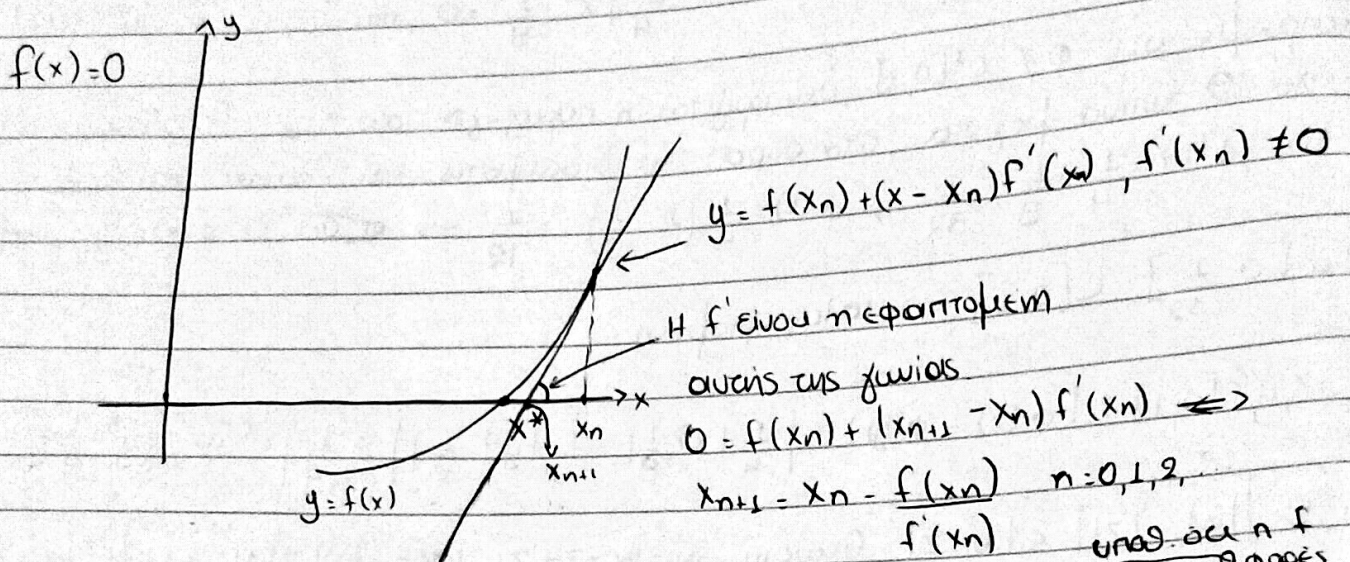 y
f(x)=0
y = f(xn) + (x - xn) f'(xn), f'(xn) ≠ 0
Η f' είναι η εφαπτομένη
αυτής της γωνίας
x
x* xn
xn+1
0 = f(xn) + (xn+1 - xn) f'(xn) <=>
y = f(x)
xn+1 = xn - f(xn)/f'(xn) n=0,1,2,..
υποθ. ότι η f
φορές